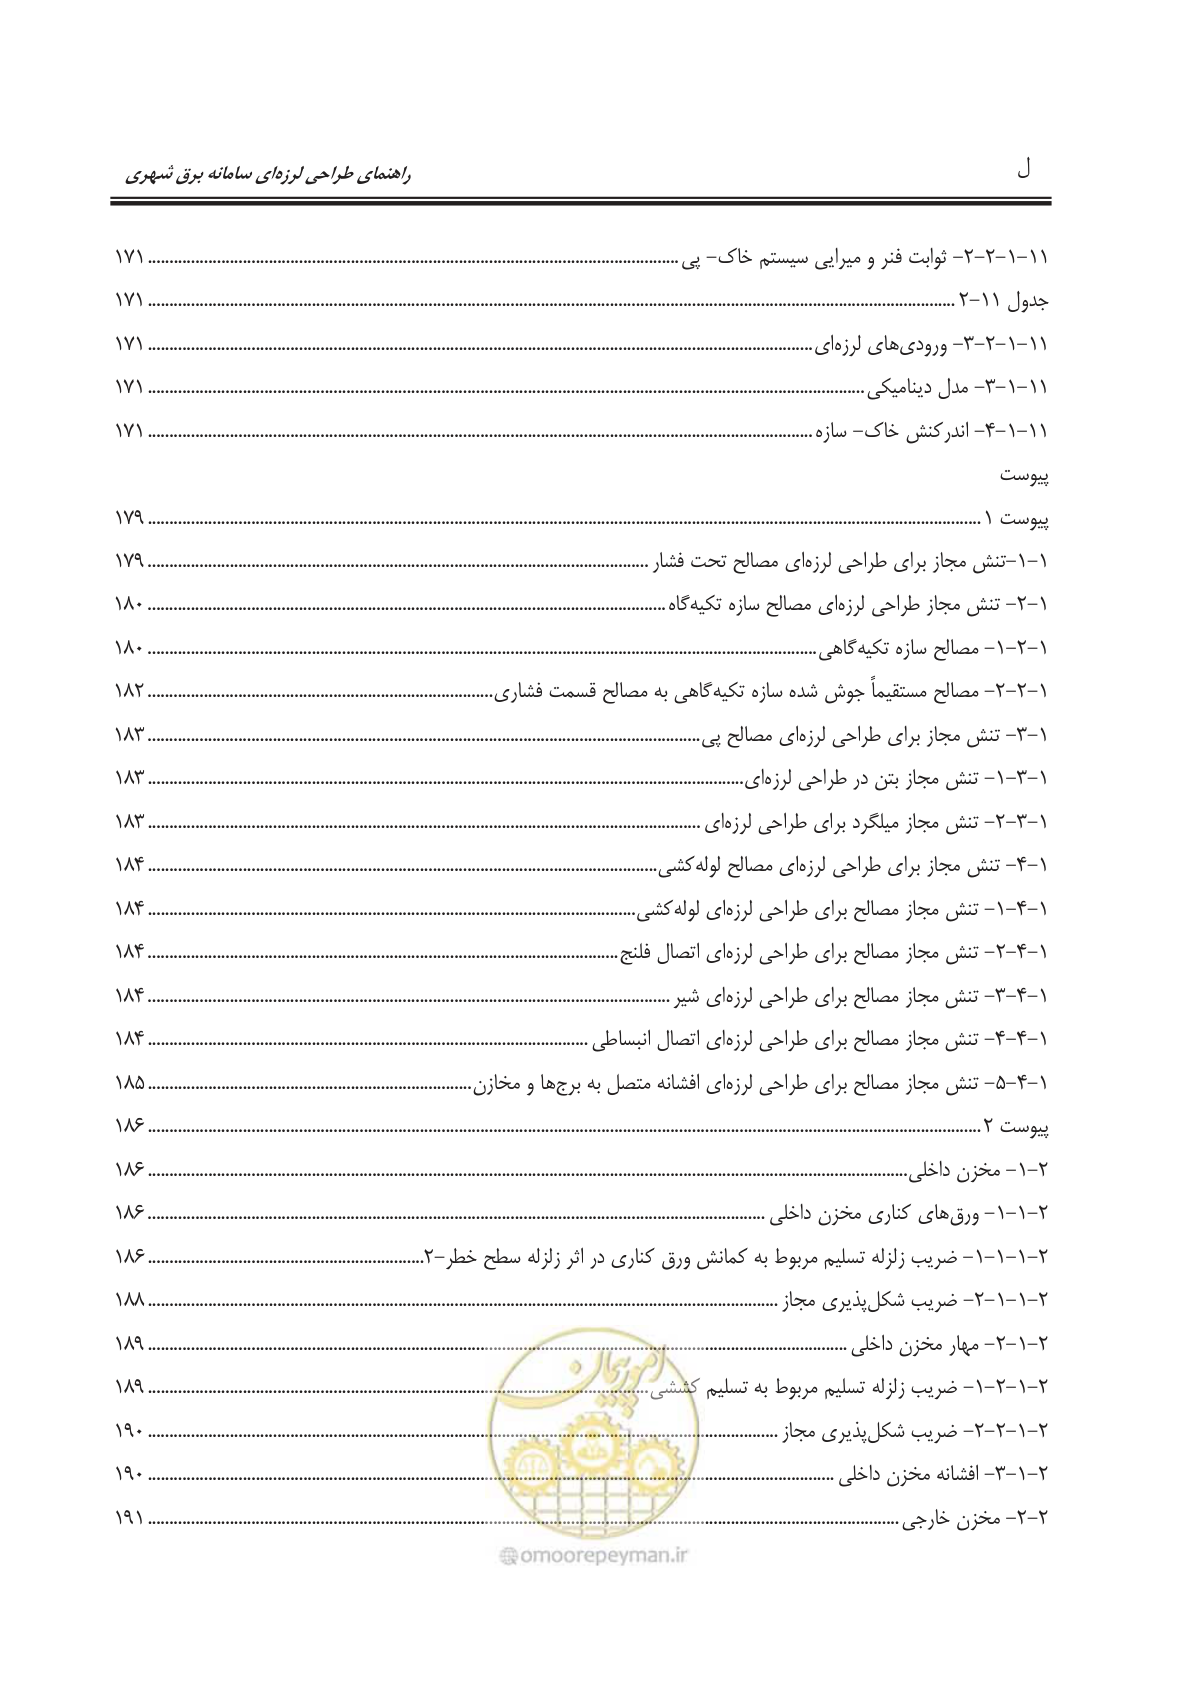 ل
راهنمای طراحی لرزه‌ای سامانه برق شهری
۱۱-۱-۲-۲- ثوابت فنر و میرایی سیستم خاک- پی ........ ۱۷۱
جدول ۱۱-۲ ........ ۱۷۱
۱۱-۱-۲-۳- ورودی‌های لرزه‌ای ........ ۱۷۱
۱۱-۱-۳- مدل دینامیکی ........ ۱۷۱
۱۱-۱-۴- اندرکنش خاک- سازه ........ ۱۷۱
پیوست
پیوست ۱ ........ ۱۷۹
۱-۱-تنش مجاز برای طراحی لرزه‌ای مصالح تحت فشار ........ ۱۷۹
۱-۲- تنش مجاز طراحی لرزه‌ای مصالح سازه تکیه‌گاه ........ ۱۸۰
۱-۲-۱- مصالح سازه تکیه‌گاهی ........ ۱۸۰
۱-۲-۲- مصالح مستقیماً جوش شده سازه تکیه‌گاهی به مصالح قسمت فشاری ........ ۱۸۲
۱-۳- تنش مجاز برای طراحی لرزه‌ای مصالح پی ........ ۱۸۳
۱-۳-۱- تنش مجاز بتن در طراحی لرزه‌ای ........ ۱۸۳
۱-۳-۲- تنش مجاز میلگرد برای طراحی لرزه‌ای ........ ۱۸۳
۱-۴- تنش مجاز برای طراحی لرزه‌ای مصالح لوله‌کشی ........ ۱۸۴
۱-۴-۱- تنش مجاز مصالح برای طراحی لرزه‌ای لوله‌کشی ........ ۱۸۴
۱-۴-۲- تنش مجاز مصالح برای طراحی لرزه‌ای اتصال فلنج ........ ۱۸۴
۱-۴-۳- تنش مجاز مصالح برای طراحی لرزه‌ای شیر ........ ۱۸۴
۱-۴-۴- تنش مجاز مصالح برای طراحی لرزه‌ای اتصال انبساطی ........ ۱۸۴
۱-۴-۵- تنش مجاز مصالح برای طراحی لرزه‌ای افشانه متصل به برج‌ها و مخازن ........ ۱۸۵
پیوست ۲ ........ ۱۸۶
۲-۱- مخزن داخلی ........ ۱۸۶
۲-۱-۱- ورق‌های کناری مخزن داخلی ........ ۱۸۶
۲-۱-۱-۱- ضریب زلزله تسلیم مربوط به کمانش ورق کناری در اثر زلزله سطح خطر-۲ ........ ۱۸۶
۲-۱-۱-۲- ضریب شکل‌پذیری مجاز ........ ۱۸۸
۲-۱-۲- مهار مخزن داخلی ........ ۱۸۹
۲-۱-۲-۱- ضریب زلزله تسلیم مربوط به تسلیم کششی ........ ۱۸۹
۲-۱-۲-۲- ضریب شکل‌پذیری مجاز ........ ۱۹۰
۲-۱-۳- افشانه مخزن داخلی ........ ۱۹۰
۲-۲- مخزن خارجی ........ ۱۹۱
امور پیمان
@omoorepeyman.ir